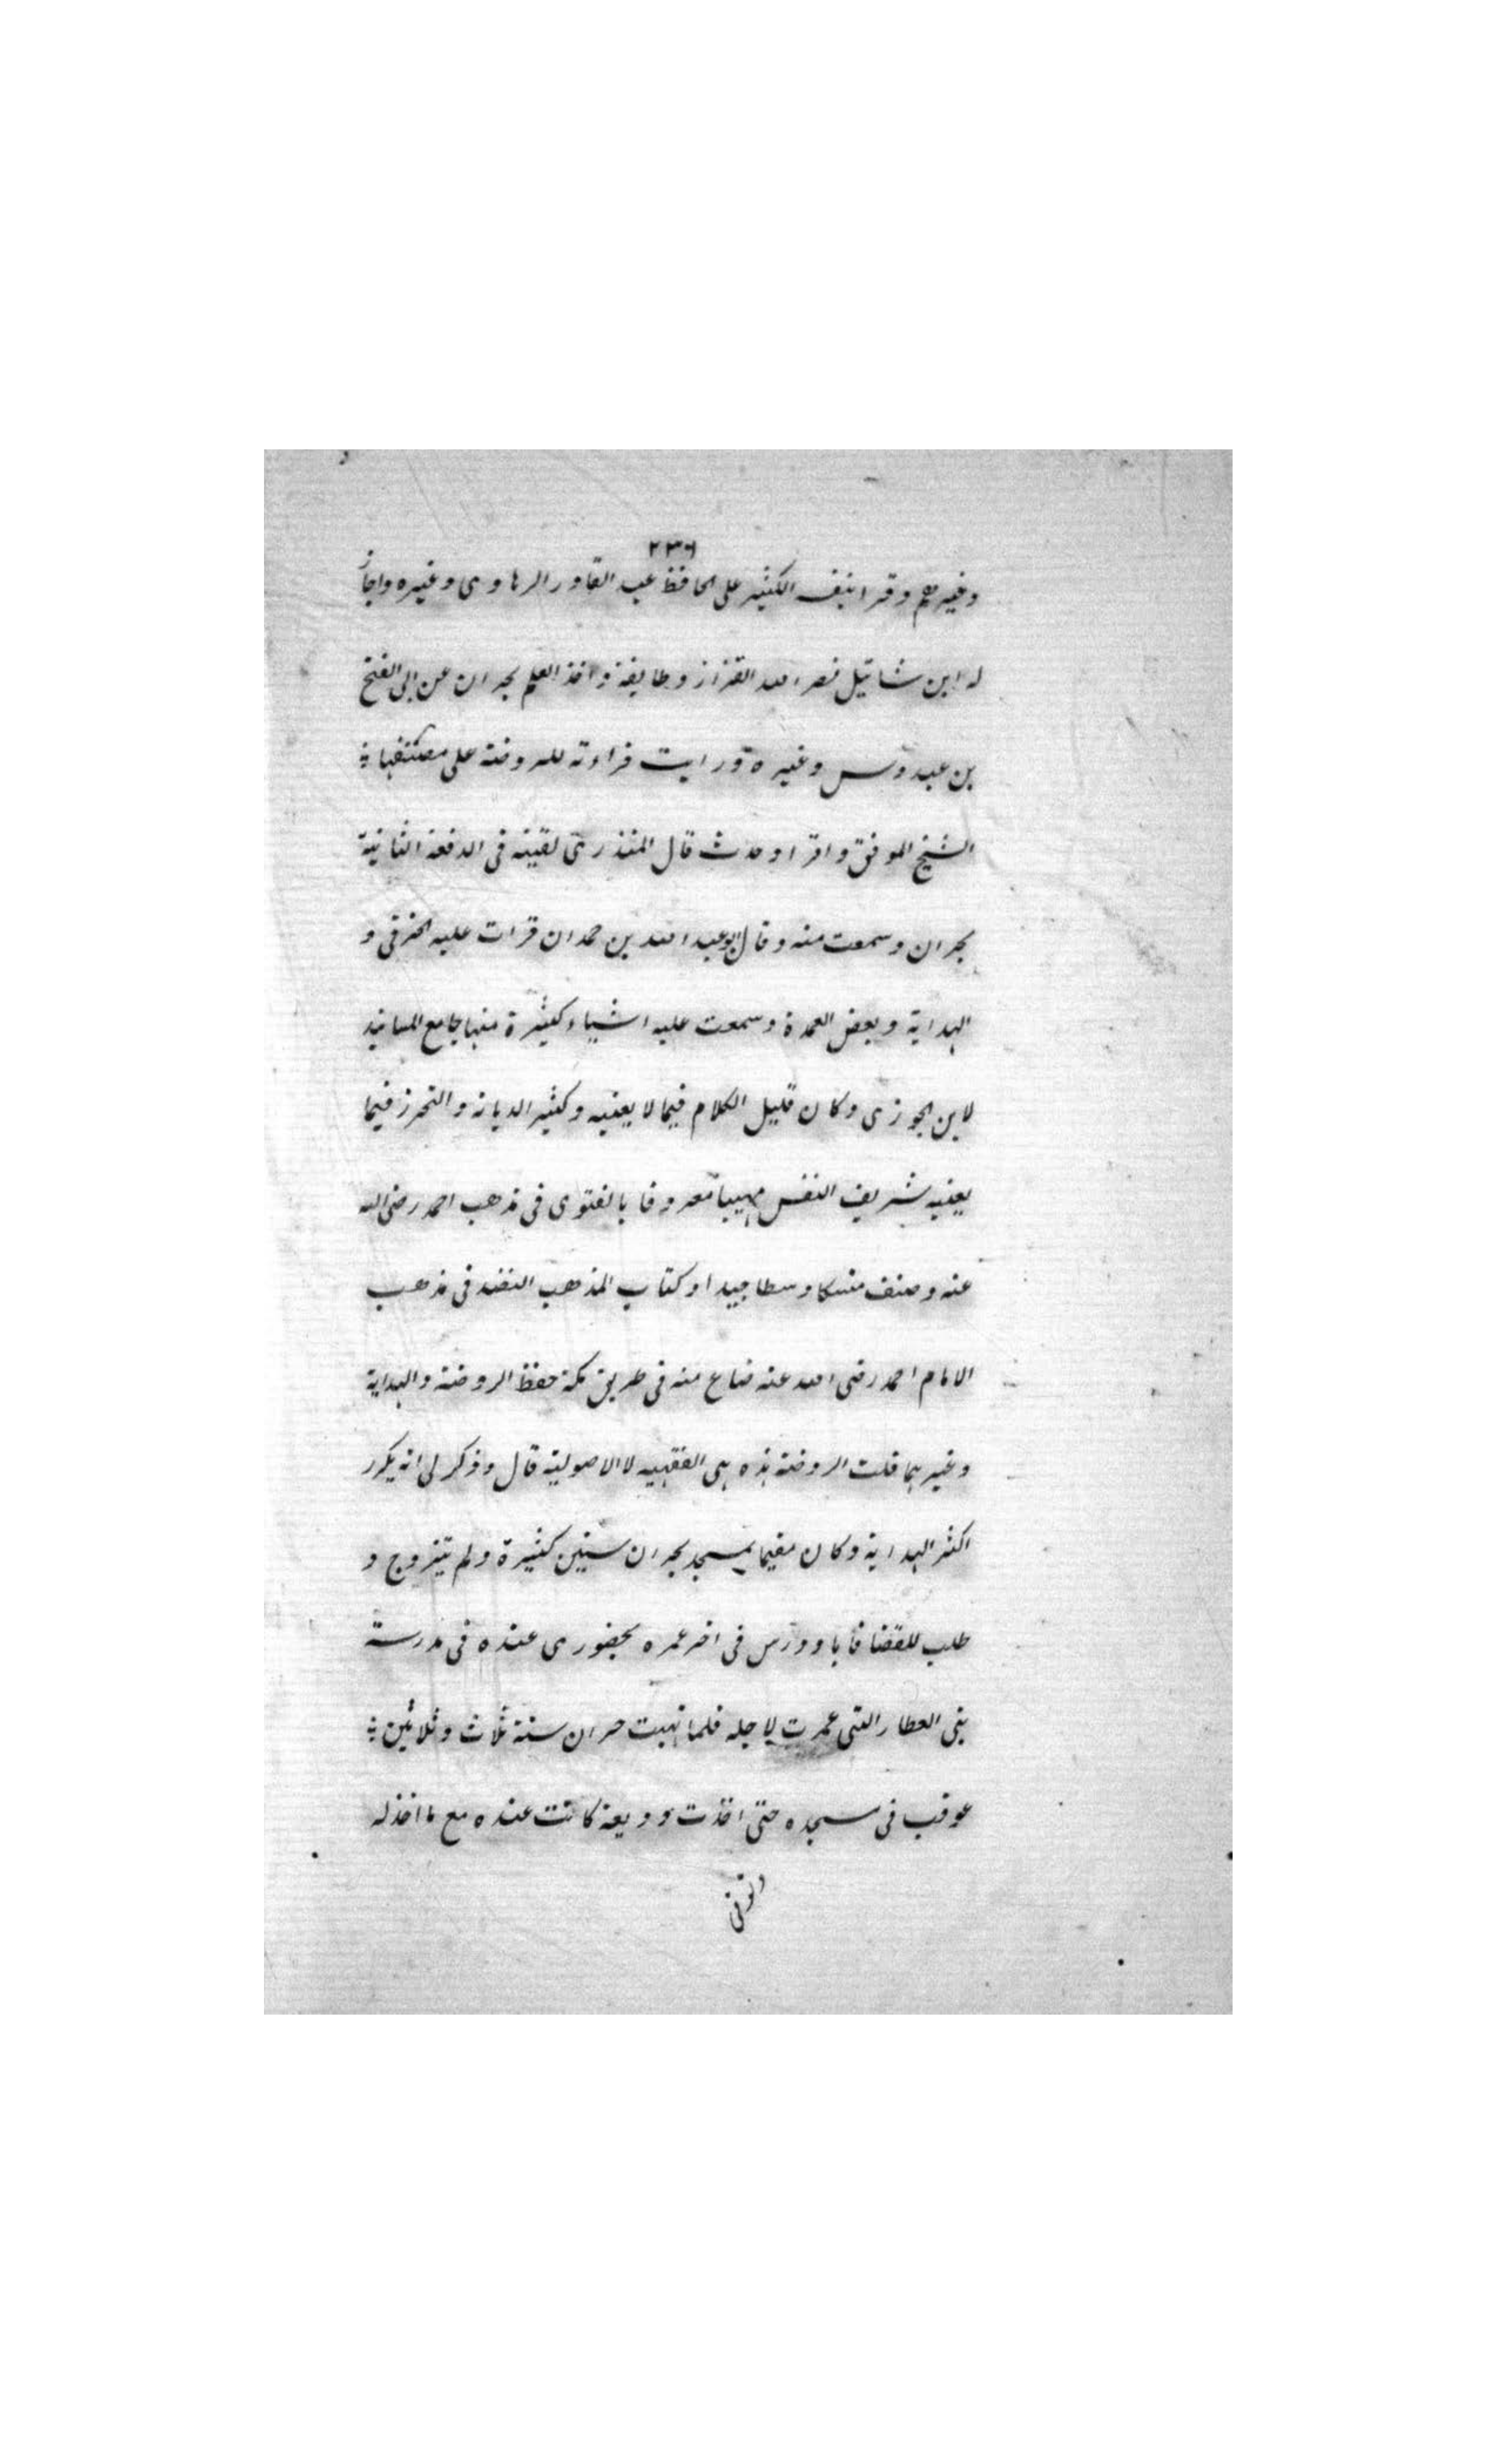 ٢٣٦
وغيرهم وقرا بنفسه الكثير على الحافظ عبد القادر الرهاوى وغيره واجاز
له ابن شاتيل نصر الله القزاز وطايفة واخذ العلم بحران عن ابى الفتح
بن عبدوس وغيره ورايت قراءته للروضة على مصنفها
الشيخ الموفق واقرا وحدث قال المنذرى لقيته فى الدفعة الثانية
بحران وسمعت منه وقال ابو عبد الله بن حمدان قرات عليه الخرقى و
الهداية وبعض العمدة وسمعت عليه اشياء كثيرة منها جامع المسانيد
لابن الجوزى وكان قليل الكلام فيما لا يعنيه وكثير الديانة والتحرز فيما
يعنيه شريف النفس مهيبا معروفا بالفتوى فى مذهب احمد رضى الله
عنه وصنف منسكا وسطا جيدا وكتاب المذهب المنضد فى مذهب
الامام احمد رضى الله عنه ضاع منه فى طريق مكة حفظ الروضة والهداية
وغيرهما قلت الروضة هذه هى الفقهيه لا الاصولية قال وذكر لى انه يكرر
اكثر الهداية وكان مقيما بمسجد بحران سنين كثيرة ولم يتزوج و
طلب للقضا فابا ودرس فى اخر عمره بحضورى عنده فى مدرسة
بنى العطار التى عمرت لاجله فلما نهبت حران سنة ثلاث وثلاثين
عوقب فى مسجده حتى اخذت وديعة كانت عنده مع ما اخذ له
وتوفى